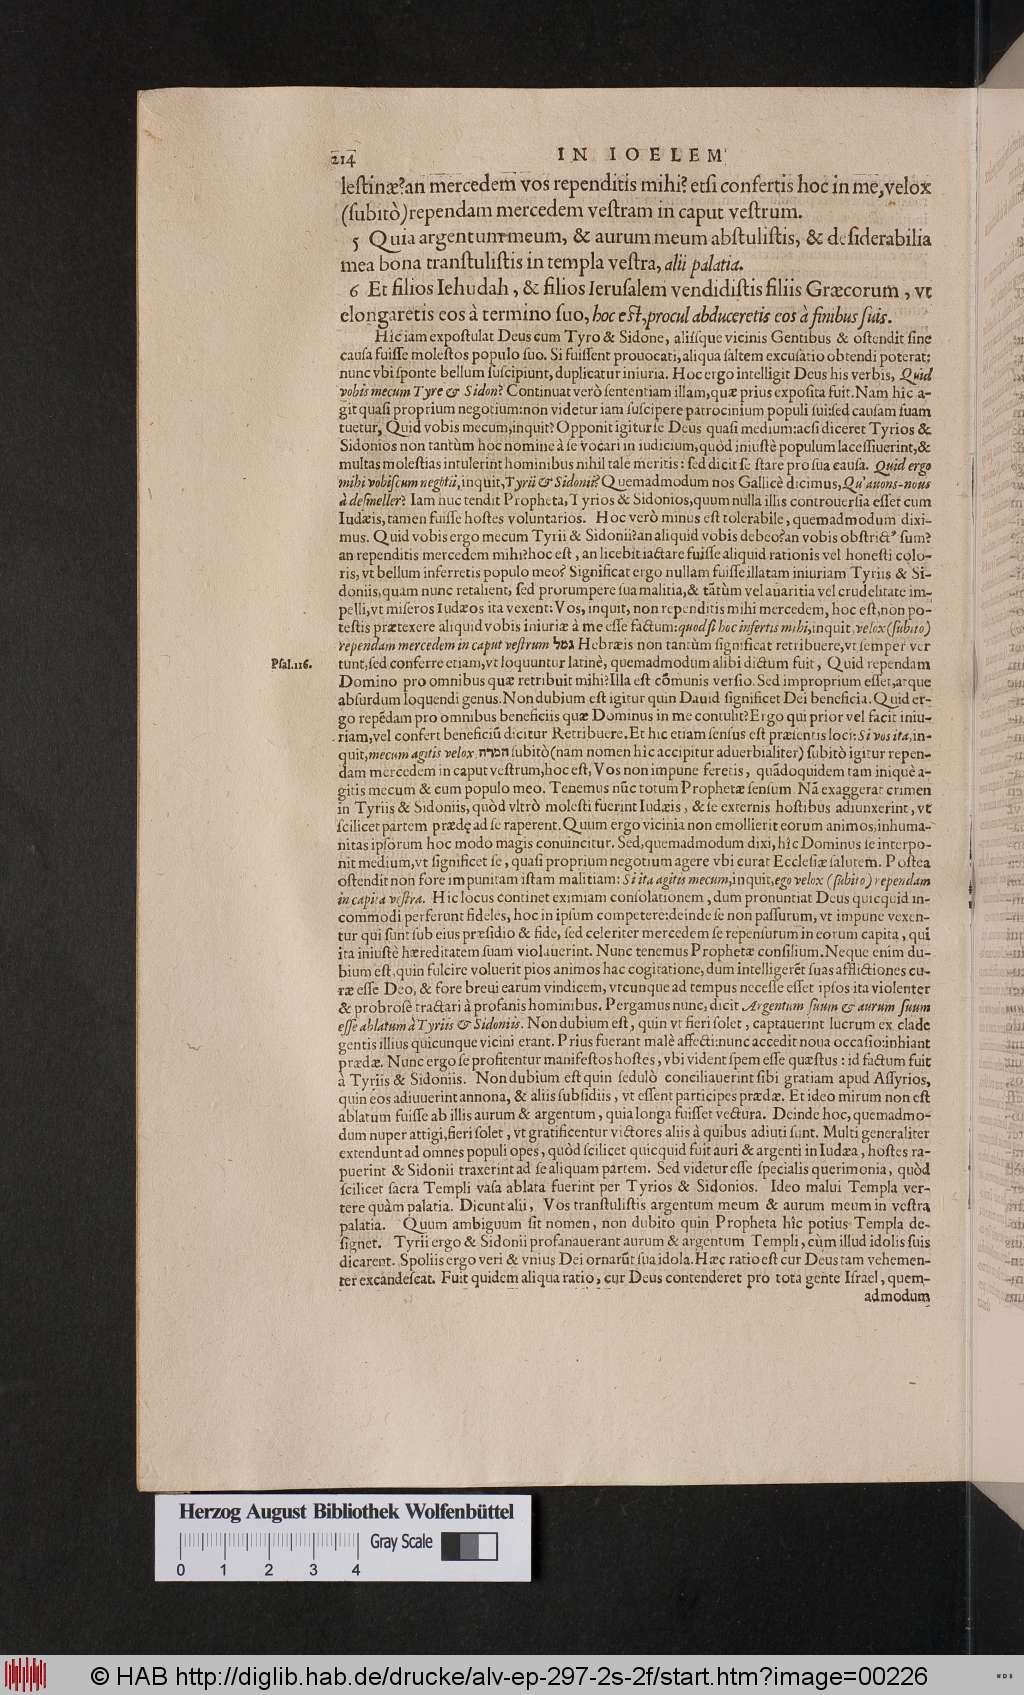 214
IN IOELEM
lestinæ? an mercedem vos rependitis mihi? etsi confertis hoc in me, velox
(subitò) rependam mercedem vestram in caput vestrum.
5 Quia argentum meum, & aurum meum abstulistis, & desiderabilia
mea bona transtulistis in templa vestra, alii palatia.
6 Et filios Iehudah, & filios Ierusalem vendidistis filiis Græcorum, vt
elongaretis eos à termino suo, hoc est, procul abduceretis eos à finibus suis.
Hic iam expostulat Deus cum Tyro & Sidone, aliisque vicinis Gentibus & ostendit sine
causa fuisse molestos populo suo. Si fuissent prouocati, aliqua saltem excusatio obtendi poterat:
nunc vbi sponte bellum suscipiunt, duplicatur iniuria. Hoc ergo intelligit Deus his verbis, Quid
vobis mecum Tyre & Sidon? Continuat verò sententiam illam, quæ prius exposita fuit. Nam hic a-
git quasi proprium negotium: non videtur iam suscipere patrocinium populi sui: sed causam suam
tuetur, Quid vobis mecum, inquit? Opponit igitur se Deus quasi medium: acsi diceret Tyrios &
Sidonios non tantùm hoc nomine à se vocari in iudicium, quòd iniustè populum lacessiuerint, &
multas molestias intulerint hominibus nihil tale meritis: sed dicit se stare pro sua causa. Quid ergo
mihi vobiscum negotii, inquit, Tyrii & Sidonii? Quemadmodum nos Gallicè dicimus, Qu'auons-nous
à desmeller? Iam nuc tendit Propheta, Tyrios & Sidonios, quum nulla illis controuersia esset cum
Iudæis, tamen fuisse hostes voluntarios. Hoc verò minus est tolerabile, quemadmodum dixi-
mus. Quid vobis ergo mecum Tyrii & Sidonii? an aliquid vobis debeo? an vobis obstrictꝰ sum?
an rependitis mercedem mihi? hoc est, an licebit iactare fuisse aliquid rationis vel honesti colo-
ris, vt bellum inferretis populo meo? Significat ergo nullam fuisse illatam iniuriam Tyriis & Si-
doniis, quam nunc retalient, sed prorumpere sua malitia, & tātùm vel auaritia vel crudelitate im-
pelli, vt miseros Iudæos ita vexent: Vos, inquit, non rependitis mihi mercedem, hoc est, non po-
testis prætexere aliquid vobis iniuriæ à me esse factum: quod si hoc infertis mihi, inquit, velox (subito)
rependam mercedem in caput vestrum גמל Hebræis non tantùm significat retribuere, vt semper ver
Psal.116.
tunt, sed conferre etiam, vt loquuntur latinè, quemadmodum alibi dictum fuit, Quid rependam
Domino pro omnibus quæ retribuit mihi? Illa est cōmunis versio. Sed improprium esset, atque
absurdum loquendi genus. Non dubium est igitur quin Dauid significet Dei beneficia. Quid er-
go repēdam pro omnibus beneficiis quæ Dominus in me contulit? Ergo qui prior vel facit iniu-
riam, vel confert beneficiū dicitur Retribuere. Et hic etiam sensus est præsentis loci: Si vos ita, in-
quit, mecum agitis velox, המרה subitò (nam nomen hic accipitur aduerbialiter) subitò igitur repen-
dam mercedem in caput vestrum, hoc est, Vos non impune feretis, quādoquidem tam iniquè a-
gitis mecum & cum populo meo. Tenemus nūc totum Prophetæ sensum. Nā exaggerat crimen
in Tyriis & Sidoniis, quòd vltrò molesti fuerint Iudæis, & se externis hostibus adiunxerint, vt
scilicet partem prædę ad se raperent. Quum ergo vicinia non emollierit eorum animos, inhuma-
nitas ipsorum hoc modo magis conuincitur. Sed, quemadmodum dixi, hîc Dominus se interpo-
nit medium, vt significet se, quasi proprium negotium agere vbi curat Ecclesiæ salutem. Postea
ostendit non fore impunitam istam malitiam: Si ita agitis mecum, inquit, ego velox (subito) rependam
in capita vestra. Hic locus continet eximiam consolationem, dum pronuntiat Deus quicquid in-
commodi perferunt fideles, hoc in ipsum competere: deinde se non passurum, vt impune vexen-
tur qui sunt sub eius præsidio & fide, sed celeriter mercedem se repensurum in eorum capita, qui
ita iniustè hæreditatem suam violauerint. Nunc tenemus Prophetæ consilium. Neque enim du-
bium est, quin fulcire voluerit pios animos hac cogitatione, dum intelligerēt suas afflictiones cu-
ræ esse Deo, & fore breui earum vindicem, vtcunque ad tempus necesse esset ipsos ita violenter
& probrosè tractari à profanis hominibus. Pergamus nunc, dicit Argentum suum & aurum suum
esse ablatum à Tyriis & Sidoniis. Non dubium est, quin vt fieri solet, captauerint lucrum ex clade
gentis illius quicunque vicini erant. Prius fuerant malè affecti: nunc accedit noua occasio: inhiant
prædæ. Nunc ergo se profitentur manifestos hostes, vbi vident spem esse quæstus: id factum fuit
à Tyriis & Sidoniis. Non dubium est quin sedulò conciliauerint sibi gratiam apud Assyrios,
quin eos adiuuerint annona, & aliis subsidiis, vt essent participes prædæ. Et ideo mirum non est
ablatum fuisse ab illis aurum & argentum, quia longa fuisset vectura. Deinde hoc, quemadmo-
dum nuper attigi, fieri solet, vt gratificentur victores aliis à quibus adiuti sunt. Multi generaliter
extendunt ad omnes populi opes, quòd scilicet quicquid fuit auri & argenti in Iudæa, hostes ra-
puerint & Sidonii traxerint ad se aliquam partem. Sed videtur esse specialis querimonia, quòd
scilicet sacra Templi vasa ablata fuerint per Tyrios & Sidonios. Ideo malui Templa ver-
tere quàm palatia. Dicunt alii, Vos transtulistis argentum meum & aurum meum in vestra
palatia. Quum ambiguum sit nomen, non dubito quin Propheta hîc potius Templa de-
signet. Tyrii ergo & Sidonii profanauerant aurum & argentum Templi, cùm illud idolis suis
dicarent. Spoliis ergo veri & vnius Dei ornarūt sua idola. Hæc ratio est cur Deus tam vehemen-
ter excandescat. Fuit quidem aliqua ratio, cur Deus contenderet pro tota gente Israel, quem-
admodum
Herzog August Bibliothek Wolfenbüttel
Gray Scale
0 1 2 3 4
© HAB http://diglib.hab.de/drucke/alv-ep-297-2s-2f/start.htm?image=00226
WDB